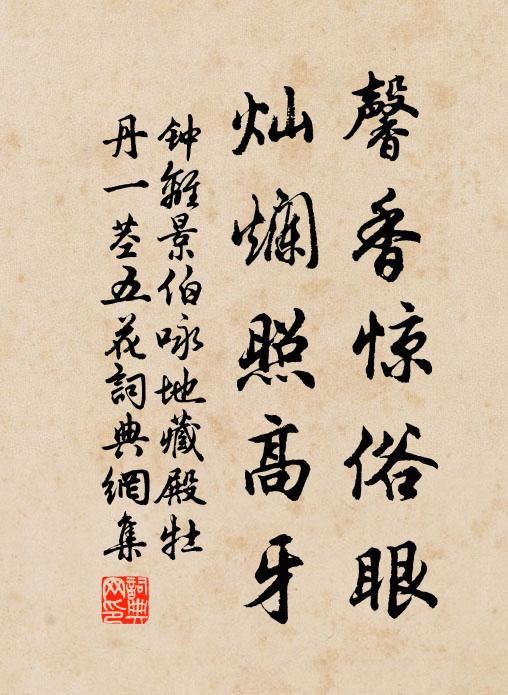 馨香惊俗眼
灿斓照高牙
钟離景伯咏地藏殿牡
丹一茎五花詞典網集
詞典網印